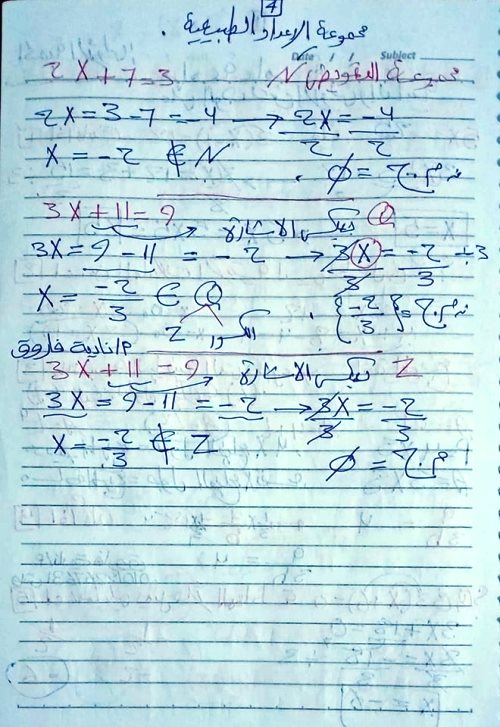 4
مجموعة الأعداد الطبيعية .
Date / / Subject
2X + 7 = 3 مجموعة التعويض N
2X = 3 - 7 = -4 → 2X/2 = -4/2
X = -2 ∉ N ∴ م.ح = ∅ .
3X + 11 = 9 بعكس الاشارة Q
3X = 9 - 11 = -2 → 3X/3 = -2/3 ÷3
X = -2/3 ∈ Q ∴ م.ح = {-2/3} .
Z
م/نادية فاروق
3X + 11 = 9 بعكس الاشارة Z
3X = 9 - 11 = -2 → 3X/3 = -2/3
X = -2/3 ∉ Z م.ح = ∅